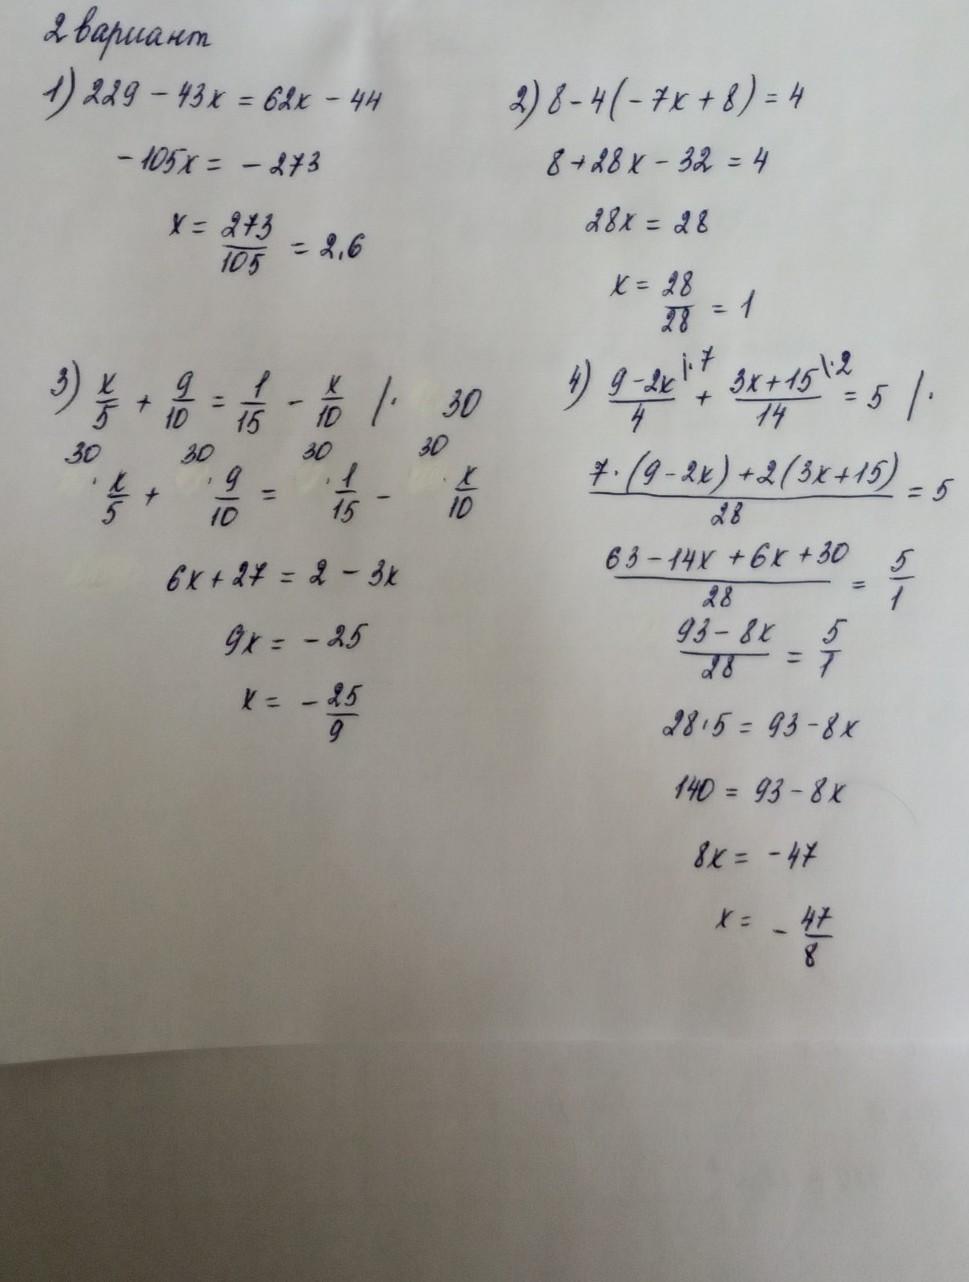 2 вариант
1) 229 - 43x = 62x - 44
-105x = -273
x = 273/105 = 2,6
2) 8 - 4(-7x + 8) = 4
8 + 28x - 32 = 4
28x = 28
x = 28/28 = 1
3) x/5 + 9/10 = 1/15 - x/10 /· 30
30 · x/5 + 30 · 9/10 = 30 · 1/15 - 30 · x/10
6x + 27 = 2 - 3x
9x = -25
x = -25/9
4) 9-2x/4 |·7 + 3x+15/14 \·2 = 5 /·
7·(9-2x)+2(3x+15)/28 = 5
63-14x+6x+30/28 = 5/1
93-8x/28 = 5/1
28·5 = 93-8x
140 = 93-8x
8x = -47
x = -47/8